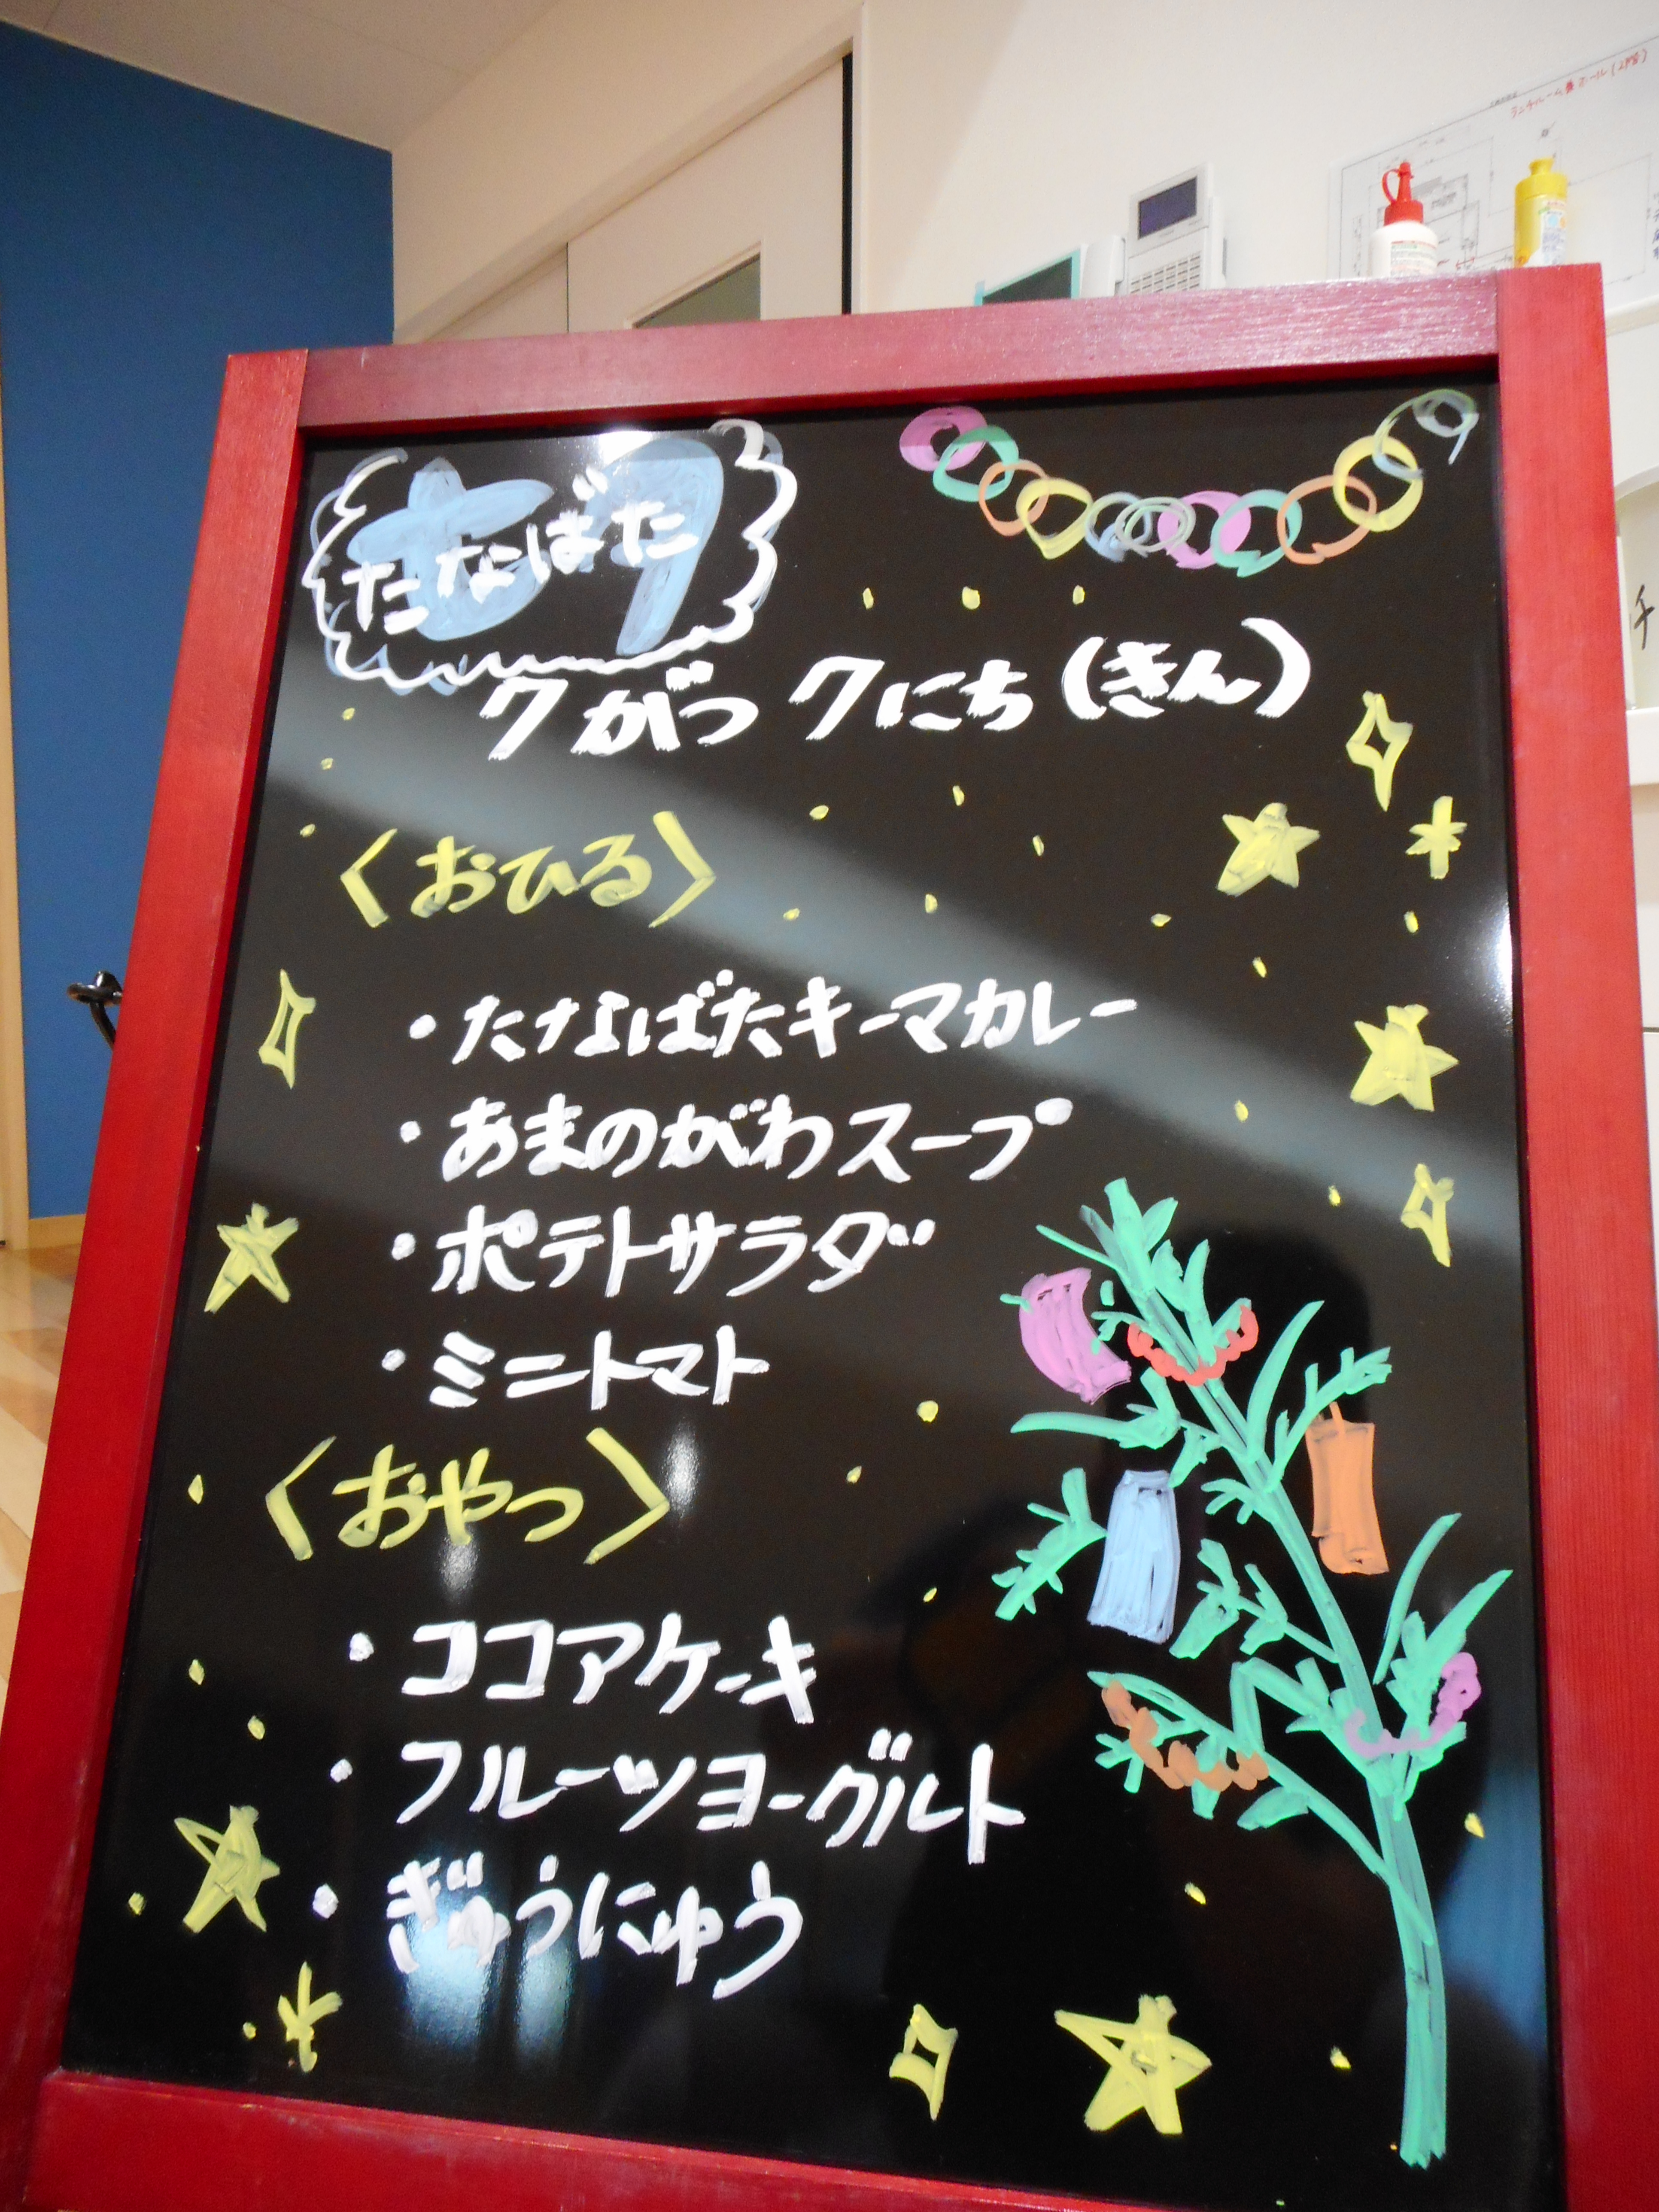 ランチルーム兼ホール(2階)
チ
たなばた
7がつ 7にち(きん)
〈おひる〉
・たなばたキーマカレー
・あまのがわスープ
・ポテトサラダ
・ミニトマト
〈おやつ〉
・ココアケーキ
・フルーツヨーグルト
・ぎゅうにゅう